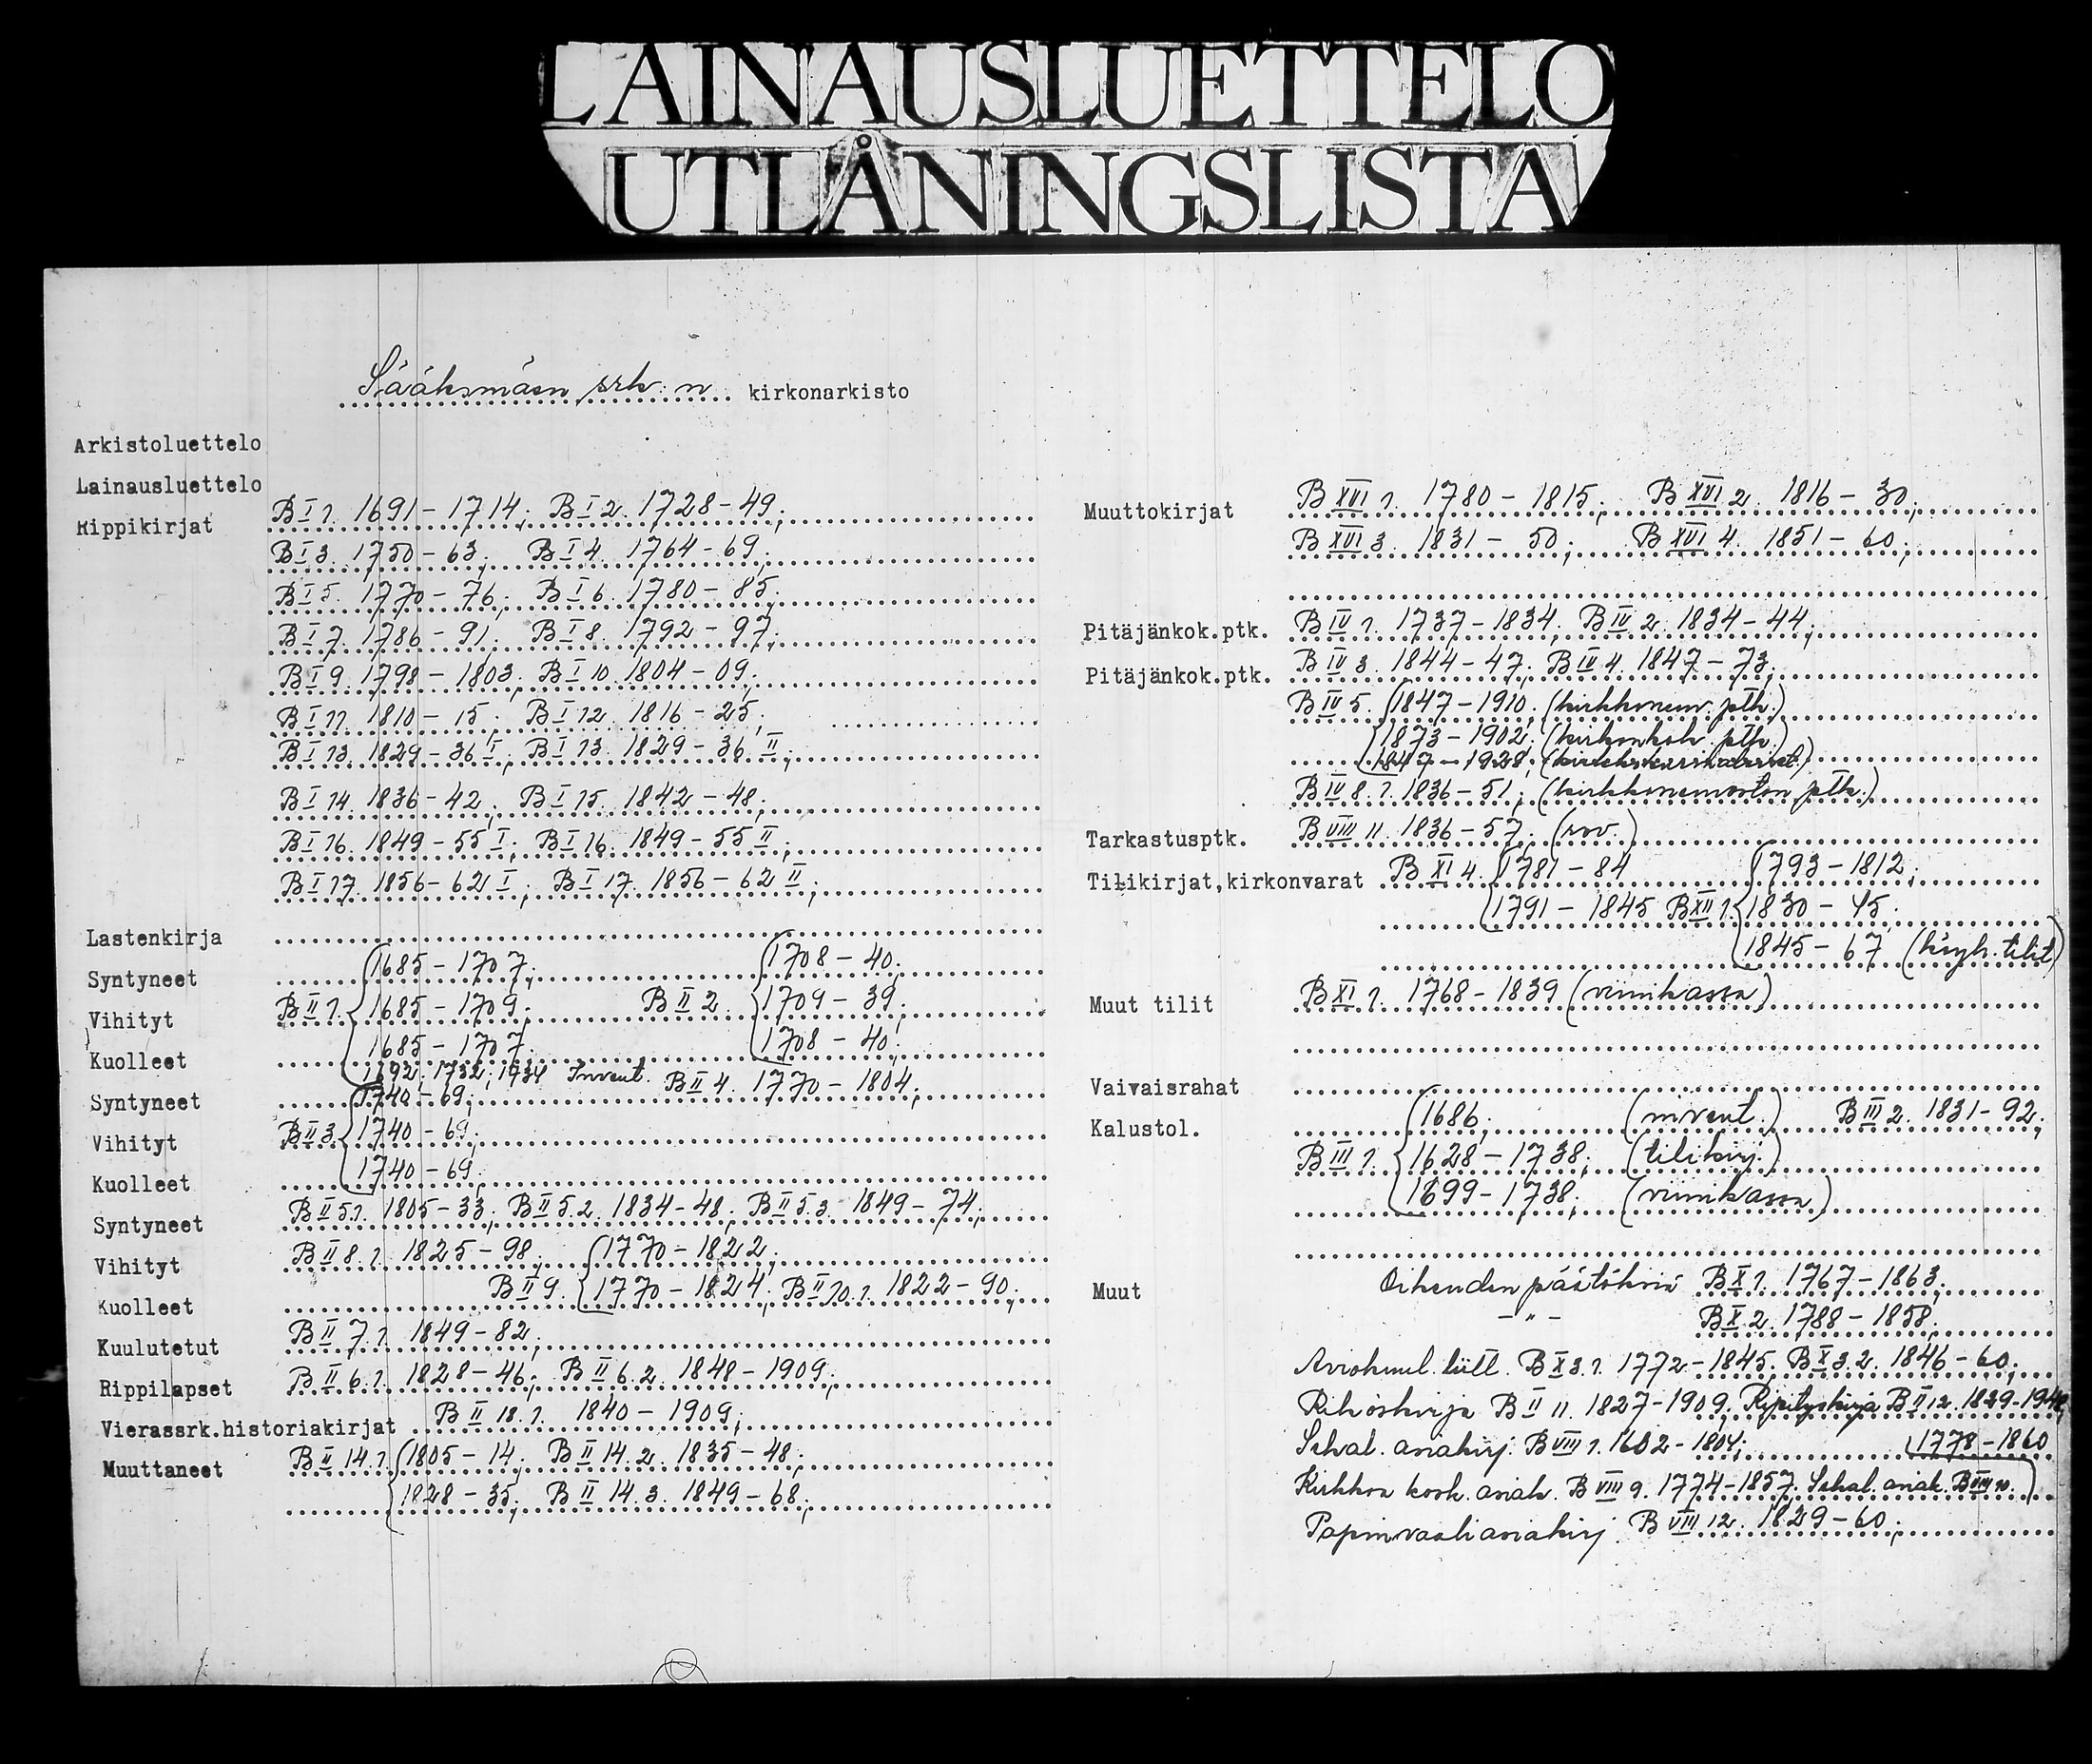 LAINAUSLUETTELO
UTLÅNINGSLISTA
Sääksmäen srk:n kirkonarkisto
Arkistoluettelo
Lainausluettelo
Rippikirjat B I 1. 1691-1714; B I 2. 1728-49;
B I 3. 1750-63; B I 4. 1764-69;
B I 5. 1770-76; B I 6. 1780-85;
B I 7. 1786-91; B I 8. 1792-97;
B I 9. 1798-1803; B I 10. 1804-09;
B I 11. 1810-15; B I 12. 1816-25;
B I 13. 1829-36 I; B I 13. 1829-36 II;
B I 14. 1836-42; B I 15. 1842-48;
B I 16. 1849-55 I; B I 16. 1849-55 II;
B I 17. 1856-62 I; B I 17. 1856-62 II;
Lastenkirja
Syntyneet 1685-1707; 1708-40;
Vihityt B II 1. 1685-1709; B II 2. 1709-39;
Kuolleet 1685-1707; 1708-40;
1692; 1732; 1734 Invent. B II 4. 1770-1804;
Syntyneet 1740-69;
Vihityt B II 3. 1740-69;
Kuolleet 1740-69;
Syntyneet B II 5.1. 1805-33; B II 5.2. 1834-48; B II 5.3. 1849-74;
Vihityt B II 8.1. 1825-98; 1770-1822;
Kuolleet B II 9. 1770-1824; B II 10.1. 1822-90;
Kuulutetut B II 7.1. 1849-82;
Rippilapset B II 6.1. 1828-46; B II 6.2. 1848-1909;
Vierassrk.historiakirjat B II 18.1. 1840-1909;
Muuttaneet B II 14.1. 1805-14; B II 14.2. 1835-48;
1828-35; B II 14.3. 1849-68;
Muuttokirjat B XVI 1. 1780-1815; B XVI 2. 1816-30;
B XVI 3. 1831-50; B XVI 4. 1851-60;
Pitäjänkok.ptk. B IV 1. 1737-1834; B IV 2. 1834-44;
Pitäjänkok.ptk. B IV 3. 1844-47; B IV 4. 1847-73;
B IV 5. 1847-1910; (kirkkoneuv. ptk.)
1873-1902; (kirkonkok. ptk.)
1847-1928;
B IV 8.1. 1836-51; (kirkkoneuvoston ptk.)
Tarkastusptk. B VIII 11. 1836-57; (rov.)
Tilikirjat,kirkonvarat B XI 4. 1781-84 1793-1812;
1791-1845 B XII 1. 1830-45.
1845-67 (köyh. tilit)
Muut tilit B XI 1. 1768-1839 (viinikassa)
Vaivaisrahat
Kalustol. 1686; (invent.) B III 2. 1831-92;
B III 1. 1628-1738; (tilikirj.)
1699-1738; (viinikassa)
Muut Oikeuden päätöksiä B X 1. 1767-1863;
-"- B X 2. 1788-1858;
Aviokuul. luett. B X 3.1. 1772-1845; B X 3.2. 1846-60;
Rikoskirja B II 11. 1827-1909. Ripityskirja B II 12. 1829-1948
Sekal. asiakirj. B VIII 1. 1602-1804; 1778-1860
Kirkkoa kosk. asiak. B VIII 9. 1774-1857. Sekal. asiak. B VIII 10.
Papinvaaliasiakirj. B VIII 12. 1829-60;